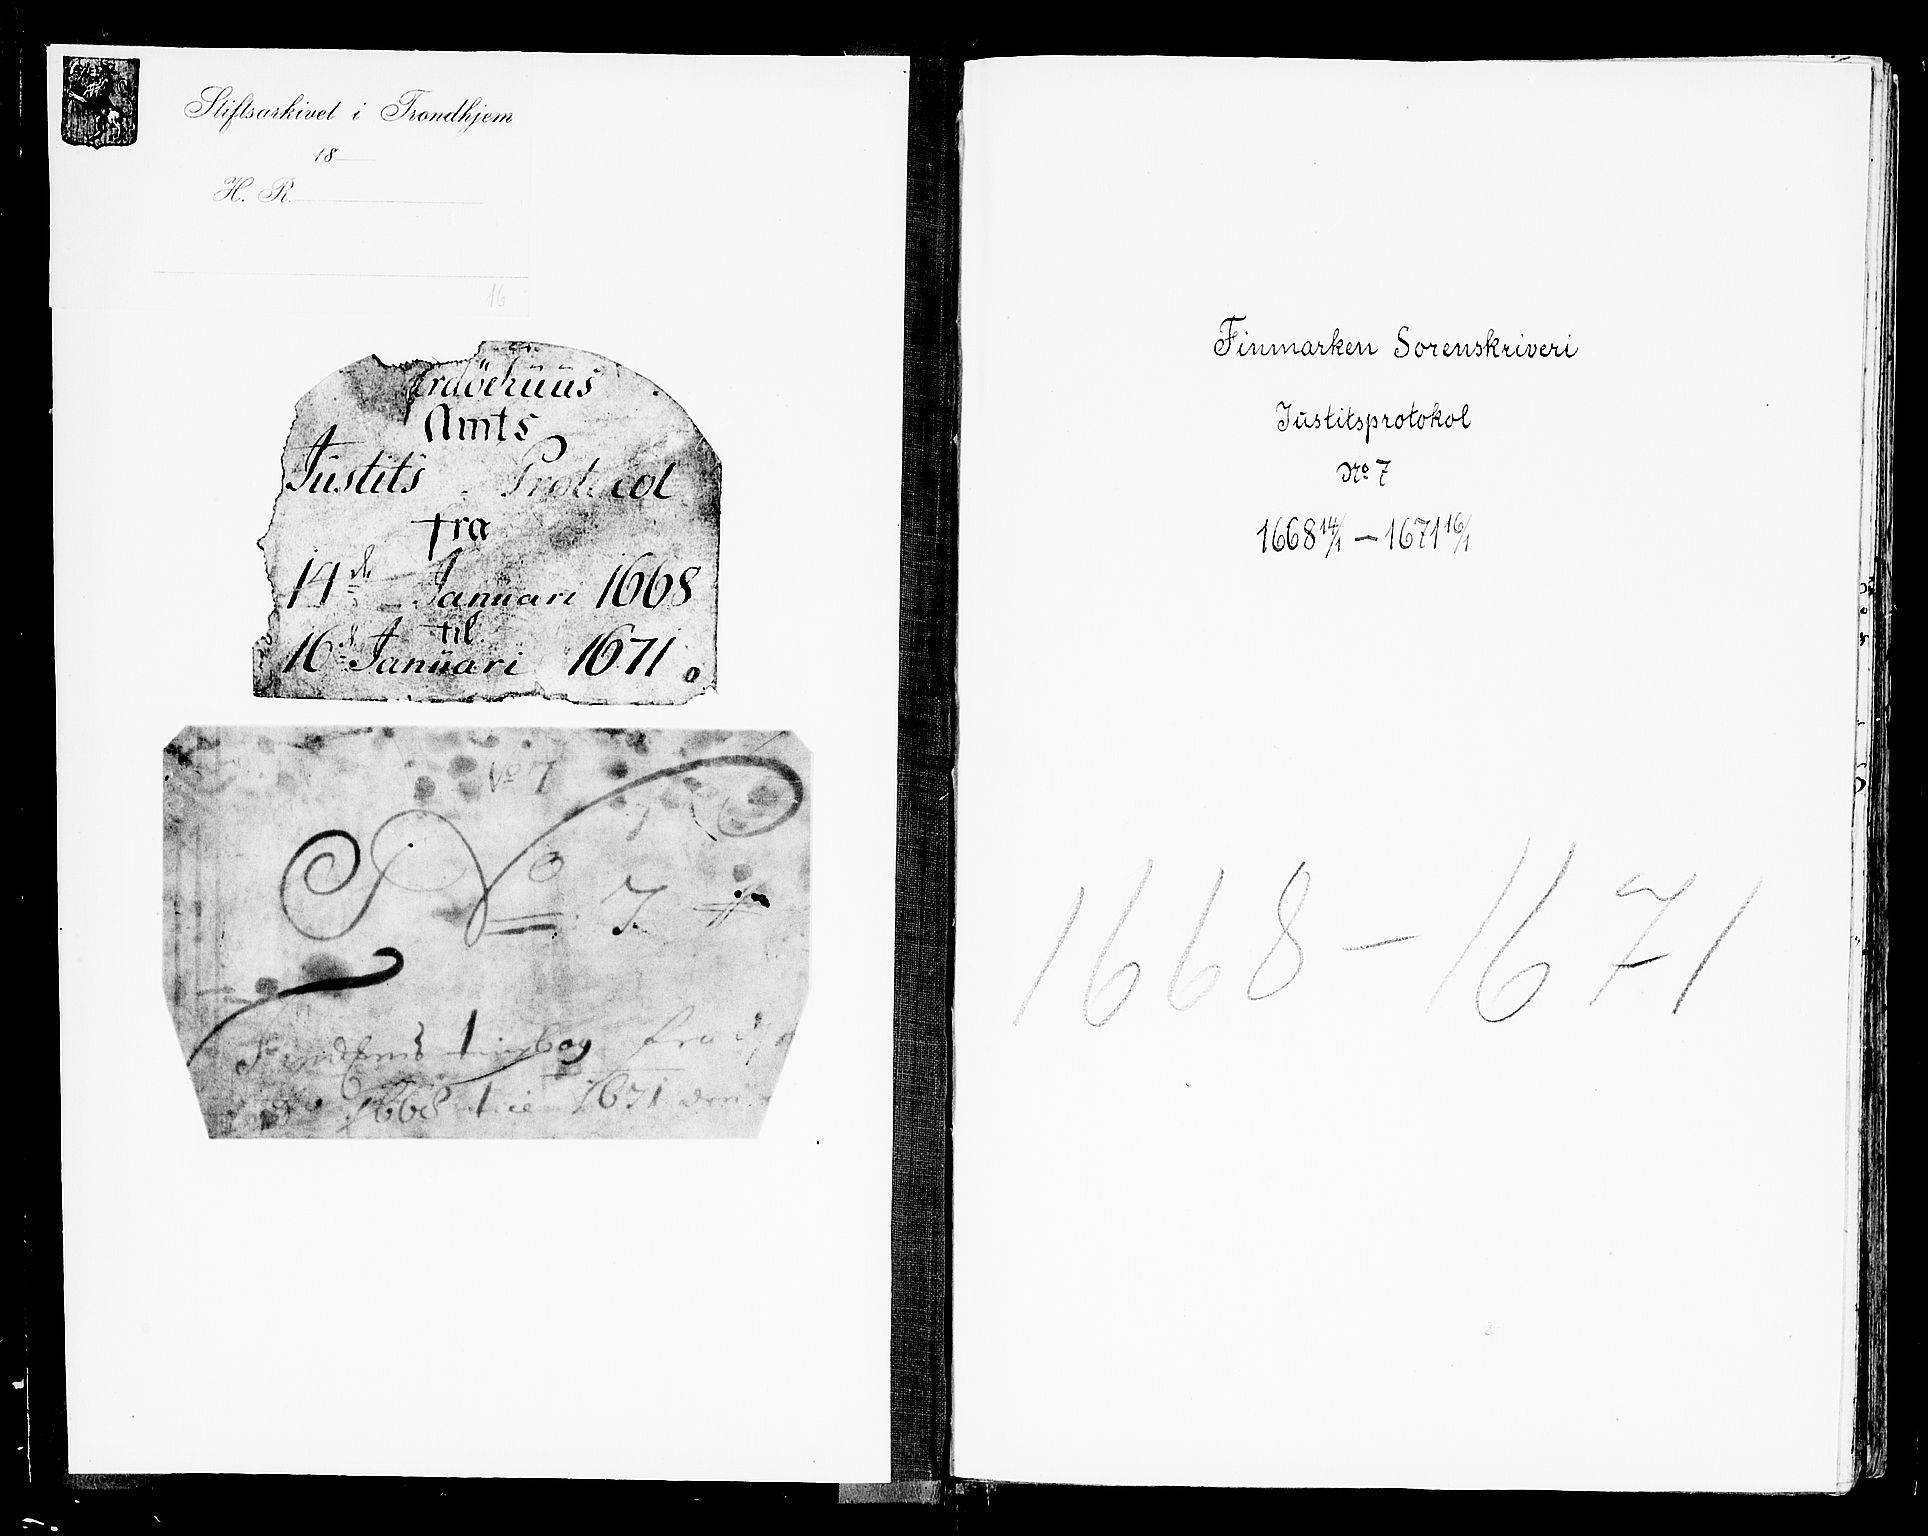 Stiftsarkivet i Trondhjem
18
H. R.
16
Amts
Justits Protocol
fra
14de Januari 1668
til
16 Januari 1671.
No 7
No 7
tingbog fra
1668 til 1671 den
Finmarken Sorenskriveri
Justitsprotokol
No 7
1668 14/1 — 1671 16/1
1668 – 1671